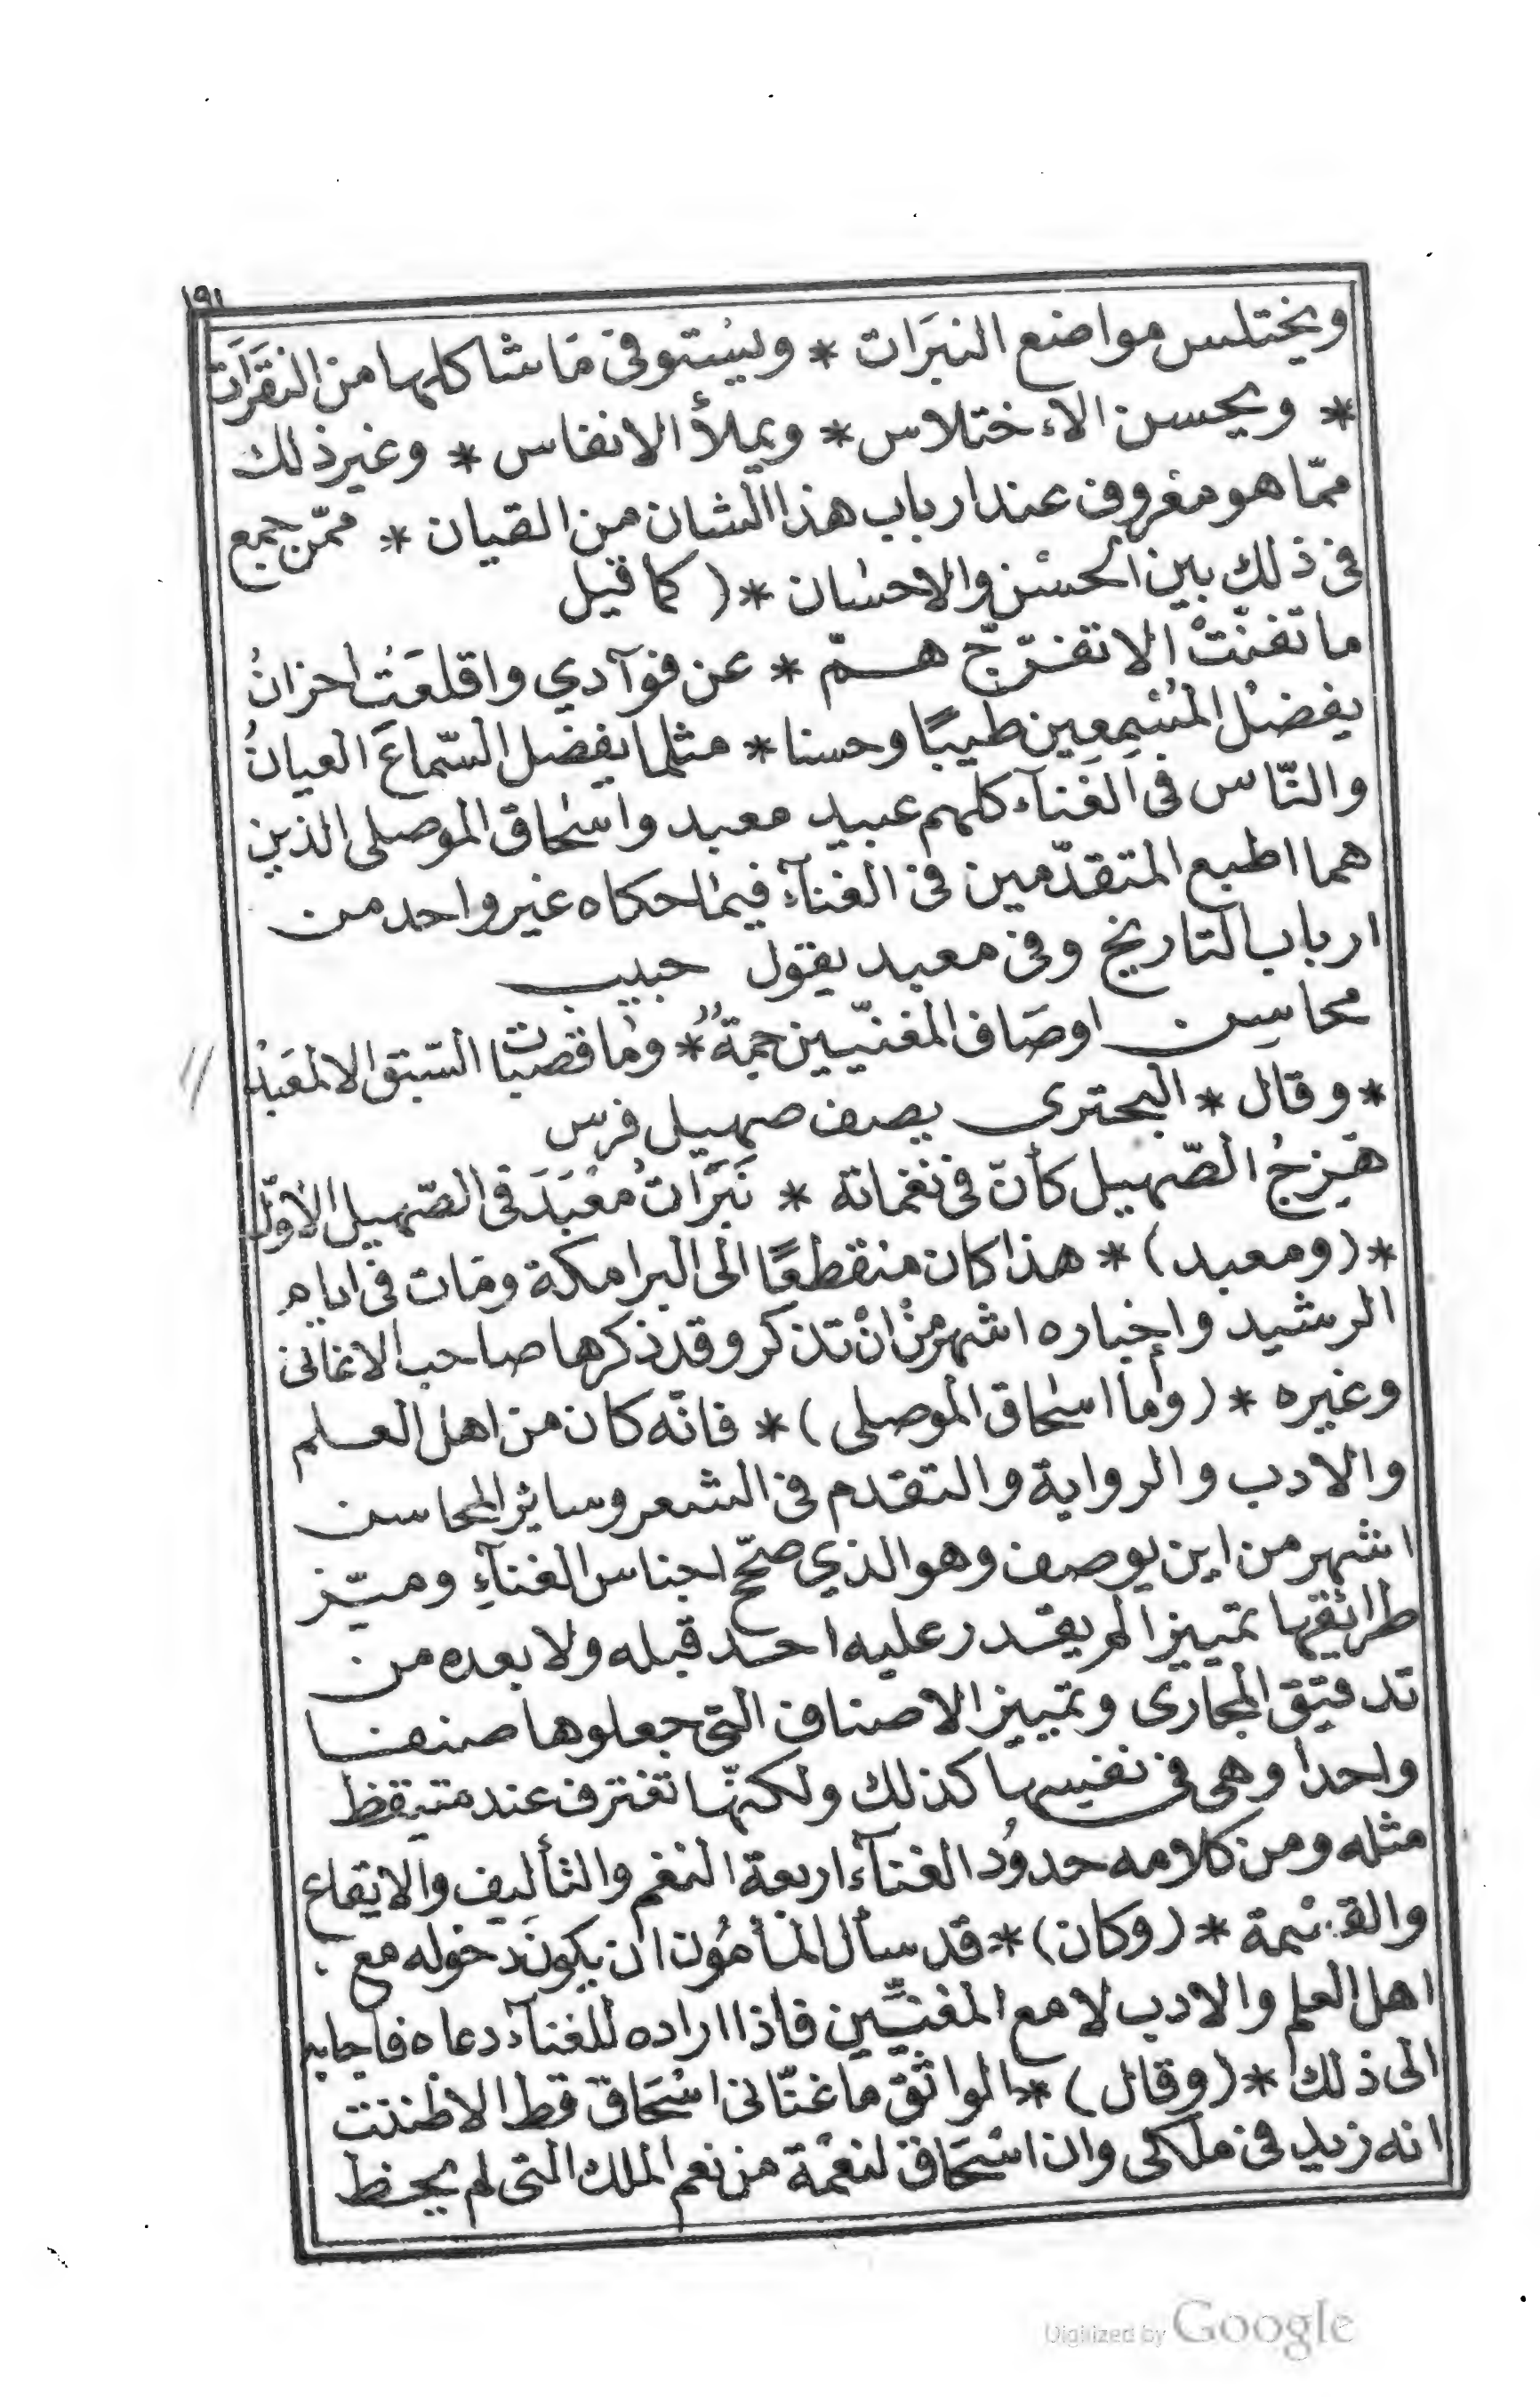 ١٩١
ويختلس مواضع النبَرَات * ويسْتوفى مَا شاكلها من النقَرَات
* ويحسن الاء ختلاس * ويملأ الانفاس * وغير ذلك
ممّا هو معْروف عند ارباب هذا الشان من القيان * ممّن جمع
فى ذلك بين الحسْن والاحسٰان * ( كما قيل
ما تغنّتْ الا تفرّجّ هـمّ * عن فوآدي واقلعَتْ احزانُ
يفضلْ المسْمِعِين طيبًا وحسنا * مثلما يفضل السّماعَ العيانُ
والنّاس فى الغنآء كلهم عبيد معبد واسٰحاق الموصلى الذين
هما اطبع المتقدّمين فى الغنآء فيمٰا حكاه غير واحد من
ارباب التاريخ وفى معبد يقول حبيب
محاسِن اوصَاف المغنّيين جمةٌ * ومٰا قصبات السّبق الا لمعَبْد
* وقال * البحترى يصف صهيل فرس
هَزِجُ الصّهيل كأنّ فى نغماته * نَبَرَاتُ مْعْبَدَ فى الصّهيل الأوّل
* (ومعبد) * هذا كان منقطعًا الى البرامكة ومَات فى ايام
الرشيد واخباره اشهر منْ انْ تذكر وقد ذكرها صاحب الاغانى
وغيره * (وأما اسٰحاق الموصلى) * فانّه كان من اهل العلم
والادب والرواية والتقدم فى الشعر وسائر المحاسن
اشهر من اين يوصف وهو الذي صحّح اجناس الغنآءِ وميّز
طرائقها تمييزا لم يقدر عليه احد قبله ولا بعده من
تدقيق المجارى وتمييز الاصناف التى جعلوها صنفا
واحدا وهى فى نفسها كذلك ولكنهّا تفترف عند متيقظ
مثله ومن كلامه حدوُد الغنآء اربعة النغم والتأليف والايقاع
والقسْمة * (وكان) * قد سأل المأمُون ان يكونَ دخوله مع
اهل العلم والادب لا مع المغنيّين فاذا اراده للغنآء دعاه فاجابه
الى ذلك * (وقال) * الواثق ما غنّانى اسْحَاق قط الا ظننت
انه زيد فى ملكى وان اسْحَاق لنعْمة من نعم الملك التى لم يحظ
Digitized by Google